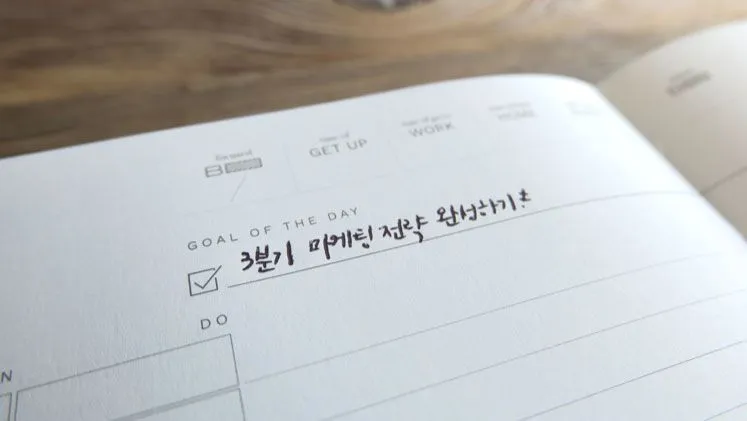 GET UP
WORK
HOME
GOAL OF THE DAY
3분기 마케팅 전략 완성하기!
DO
N